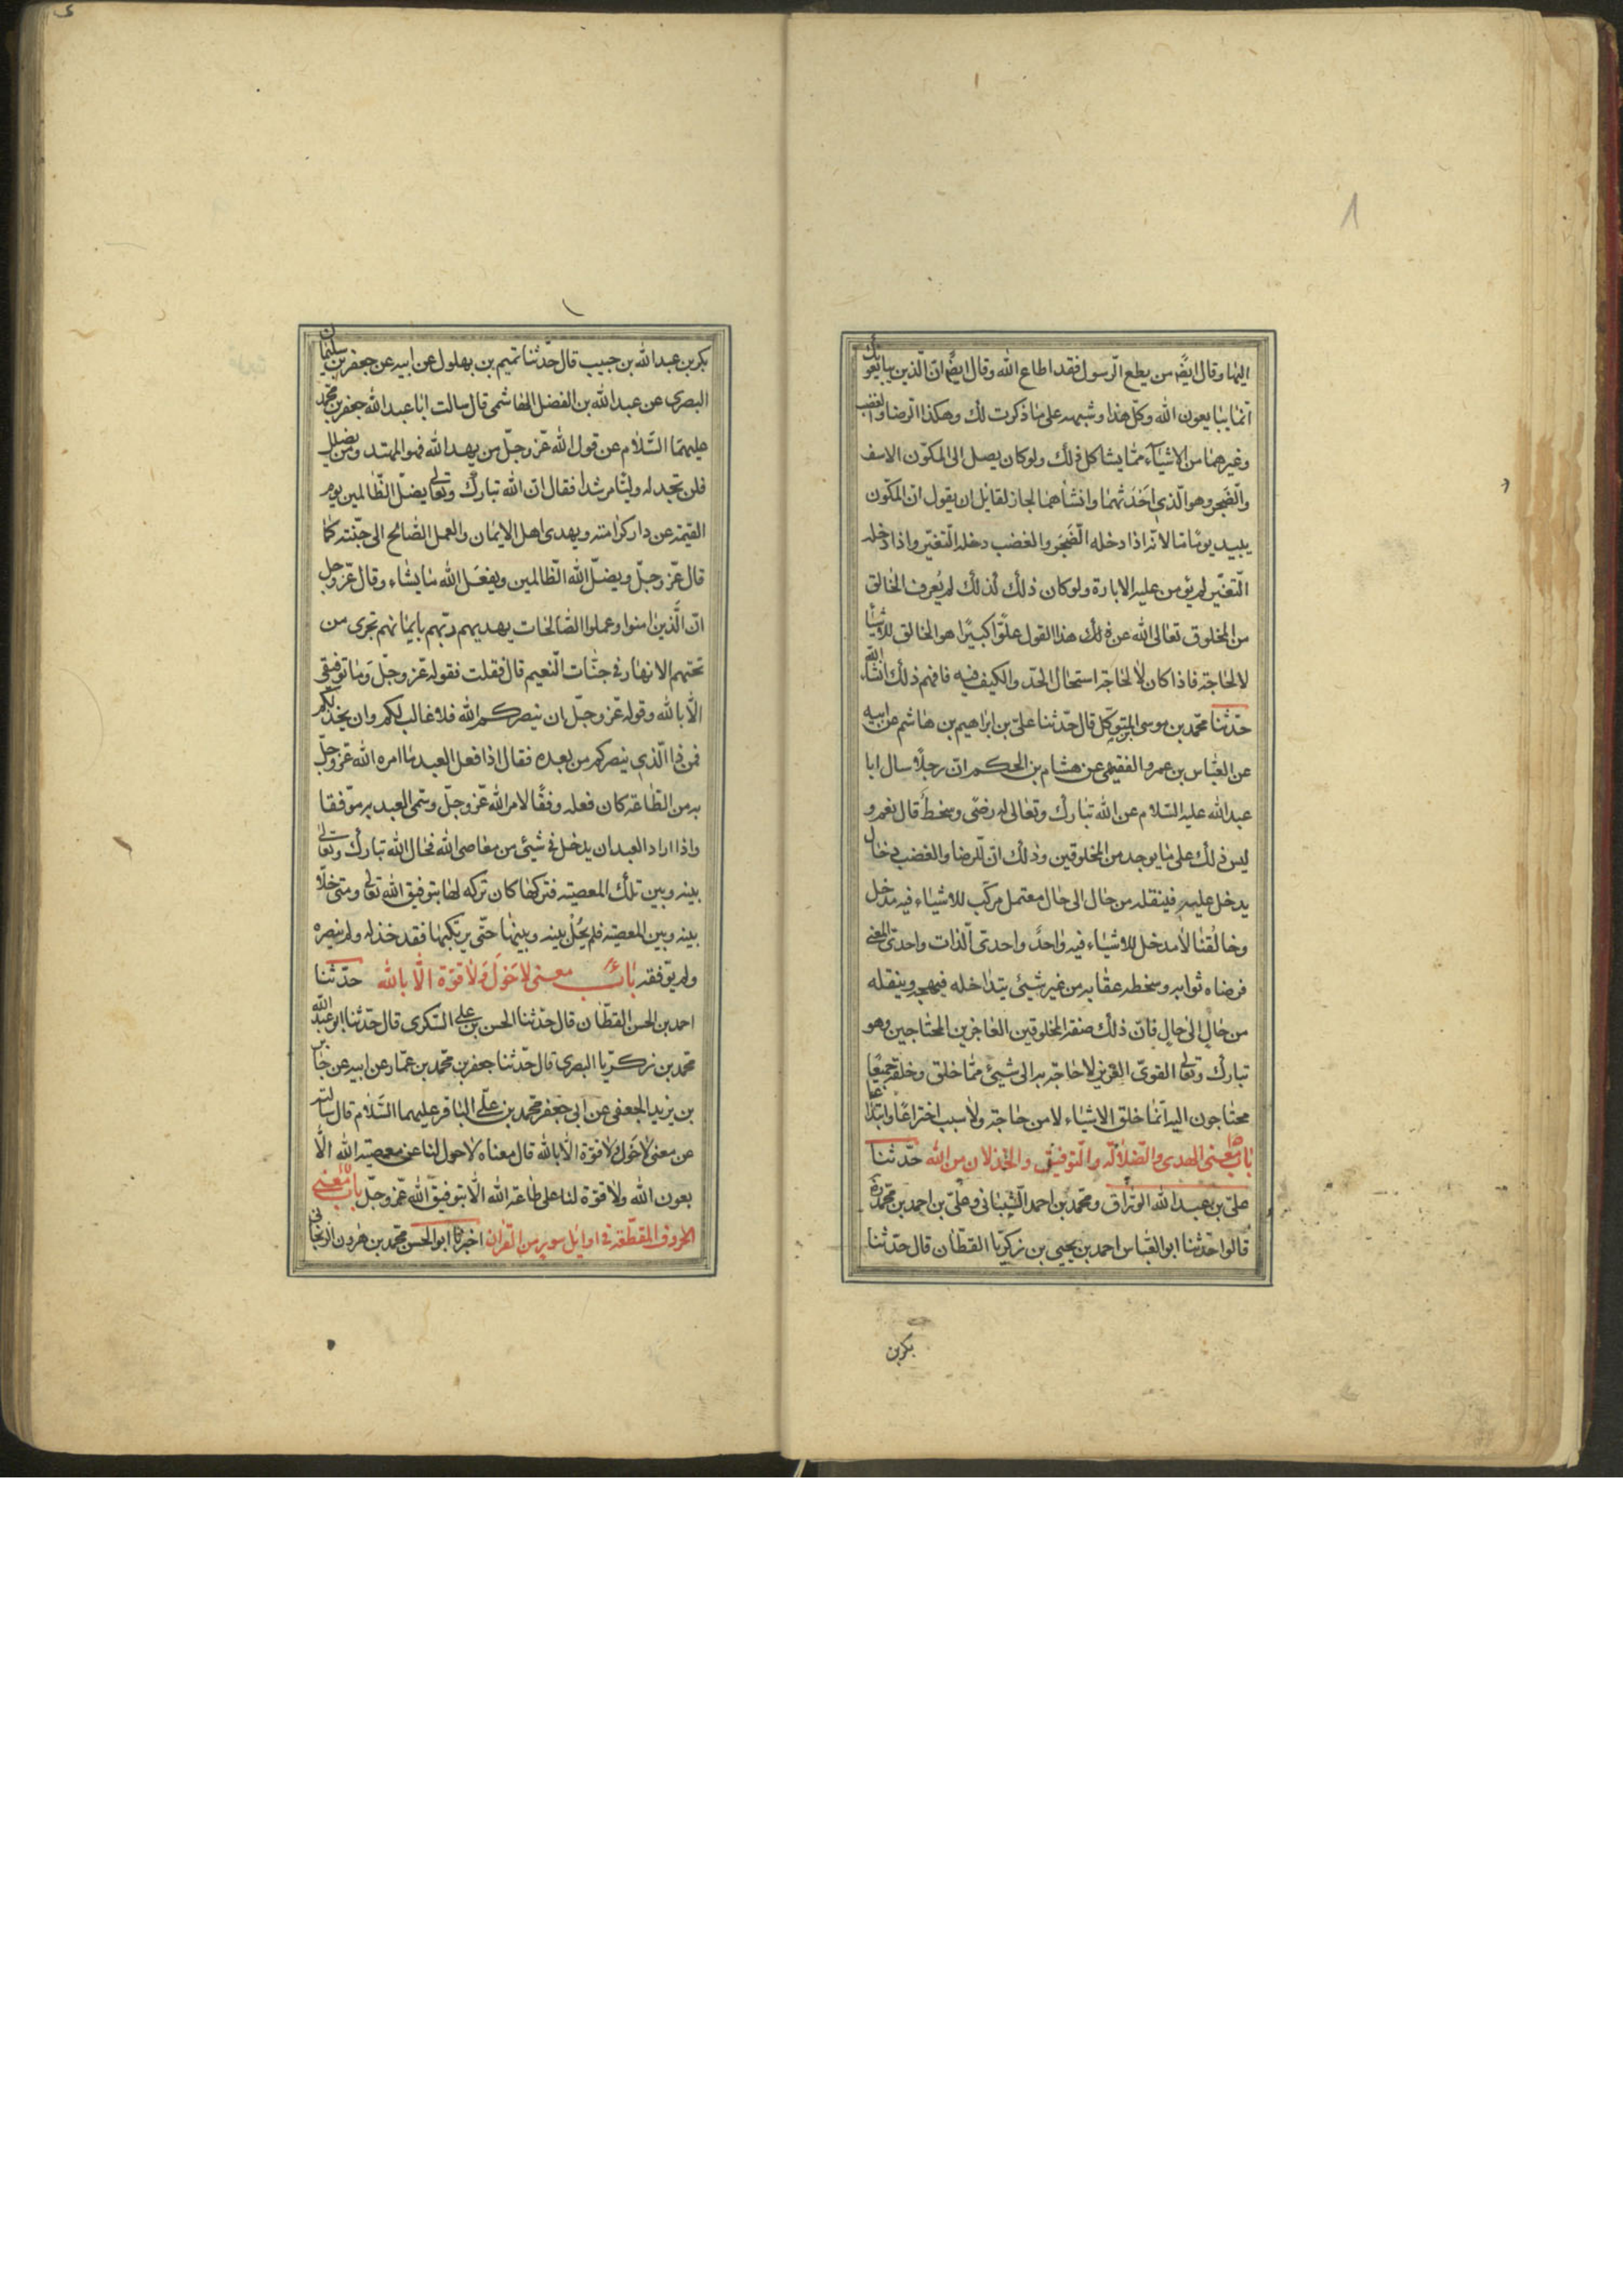 اليها وقال ايضًا من يطع الرسول فقد اطاع الله وقال ايضًا ان الذين يبايعونك
انما يبايعون الله وكل هذا وشبهه على ما ذكرت لك وهكذا الرضا والغضب
وغيرهما من الاشياء مما يشاكل ذلك ولو كان يصل الى المكون الاسف
والضجر وهو الذي احدثهما وانشاهما لجاز لقائل ان يقول ان المكون
يبيد يومًا ما لانه اذا دخله الضجر والغضب دخله التغير واذا دخله
التغير لم يؤمن عليه الابادة ولو كان ذلك كذلك لم يُعرف الخالق
من المخلوق تعالى الله عن ذلك هذا القول علوًّا كبيرًا هو الخالق للاشياء
لا لحاجة فاذا كان لا لحاجة استحال الحد والكيف فيه فافهم ذلك انشاء الله
حدثنا محمد بن موسى المتوكل قال حدثنا على بن ابراهيم بن هاشم عن ابيه
عن العباس بن عمرو الفقيمى عن هشام بن الحكم ان رجلًا سال ابا
عبد الله عليه السلام عن الله تبارك وتعالى له رضى وسخط قال نعم و
ليس ذلك على ما يوجد من المخلوقين وذلك ان الرضا والغضب دخال
يدخل عليه فينقله من حال الى حال معتمل مركب للاشياء فيه مدخل
وخالقنا لا مدخل للاشياء فيه واحدً واحدى الذات واحدى المعنى
فرضاه ثوابه وسخطه عقابه من غير شيئ يتداخله فيهجه وينقله
من حالٍ الى حالٍ فان ذلك صفة المخلوقين العاجزين المحتاجين وهو
تبارك وتعالى القوىّ العزيز لا حاجة به الى شيئ مما خلق وخلقه جميعًا
محتاجون اليه انما خلق الاشياء لا من حاجة ولا سبب اختراعًا وابتداعا
باب معنى الهدى والضلالة والتوفيق والخذلان من الله حدثنا
على بن عبد الله الوراق ومحمد بن احمد الشيبانى وعلى بن احمد بن محمد ره
قالوا حدثنا ابو العباس احمد بن يحيى بن زكريا القطان قال حدثنا
بكر بن
بكر بن عبد الله بن حبيب قال حدثنا تميم بن بهلول عن ابيه عن جعفر بن سليمان
البصرى عن عبد الله بن الفضل الهاشمى قال سالت ابا عبد الله جعفر بن محمد
عليهما السلام عن قول الله عز وجل من يهد الله فهو المهتد ومن يضلل
فلن تجد له وليًّا مرشدا فقال ان الله تبارك وتعالى يضل الظالمين يوم
القيمة عن دار كرامته ويهدى اهل الايمان والعمل الصالح الى جنته كما
قال عز وجل ويضل الله الظالمين ويفعل الله ما يشاء وقال عز وجل
ان الذين امنوا وعملوا الصالحات يهديهم ربهم بايمانهم تجرى من
تحتهم الانهار فى جنات النعيم قال فقلت فقوله عز وجل وما توفيقى
الا بالله وقوله عز وجل ان ينصركم الله فلا غالب لكم وان يخذلكم
فمن ذا الذي ينصركم من بعده فقال اذا فعل العبد ما امره الله عز وجل
به من الطاعة كان فعله وفقًا لامر الله عز وجل وسمى العبد به موفقا
واذا اراد العبد ان يدخل فى شيئ من معاصى الله فحال الله تبارك وتعالى
بينه وبين تلك المعصية فتركها كان تركه لها بتوفيق الله تعالى ومتى خلا
بينه وبين المعصية فلم يحُل بينه وبينها حتى يرتكبها فقد خذله ولم ينصره
ولم يوفقه باب معنى لا حول ولا قوة الا بالله حدثنا
احمد بن الحسن القطان قال حدثنا الحسن بن على السكرى قال حدثنا ابو عبد الله
محمد بن زكريا البصرى قال حدثنا جعفر بن محمد بن عمار عن ابيه عن جابر
بن يزيد الجعفى عن ابى جعفر محمد بن على الباقر عليهما السلام قال سالته
عن معنى لا حول ولا قوة الا بالله قال معناه لا حول لنا عن معصية الله الا
بعون الله ولا قوة لنا على طاعة الله الا بتوفيق الله عز وجل باب معنى
الحروف المقطعة فى اوايل سور من القران اخبرنا ابو الحسن محمد بن هرون الزنجانى